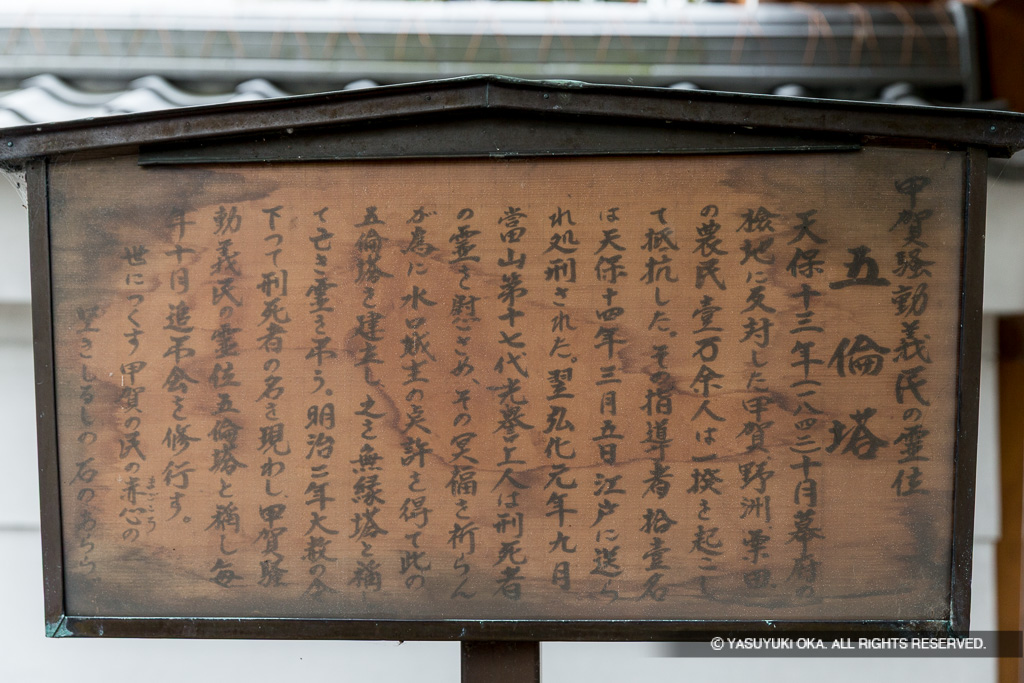 甲賀騒動義民の霊位
五倫塔
天保十三年(一八四二)十月幕府の
検地に反対した甲賀野洲栗田
の農民壹万余人は一揆を起こし
て抵抗した。その指導者拾壹名
は天保十四年三月五日江戸に送ら
れ処刑された。翌弘化元年九月
當山第十七代光誉上人は刑死者
の霊を慰ごさめ、その冥福を祈らん
が為に水口城主の許を得て此の
五倫塔を建立し之を無縁塔と稱
て亡き霊を吊う。明治二年大赦の令
下つて刑死者の名を現わし甲賀騒
動義民の霊位五倫塔と稱し毎
年十月追吊会を修行す。
世につくす甲賀の民の赤心の
まごころ
里きしるしの石のあらら
© YASUYUKI OKA. ALL RIGHTS RESERVED.